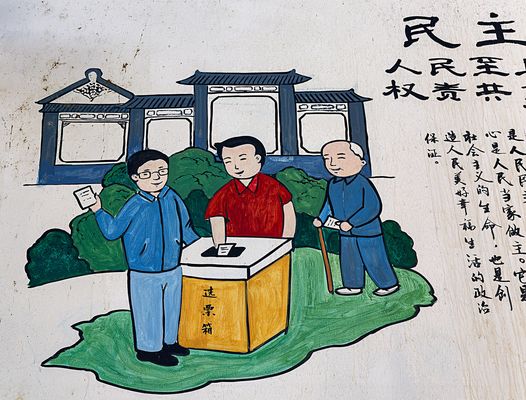 民主
人民至
权责共
是人民民主
心是人民当家做主。它是
社会主义的生命，也是创
造人民美好幸福生活的政治
保证。
选票箱